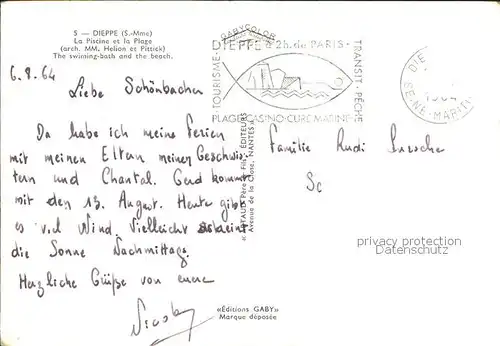 5 - DIEPPE (S.-Mme)
La Piscine et la Plage
(arch. MM. Helion et Pittick)
The swiming-bath and the beach.
GABYCOLOR
DIEPPE à 2h. de PARIS
TOURISME
TRANSIT - PÊCHE
PLAGE CASINO CURE MARINE
SEINE-MARIT
6.8.64
Liebe Schönbacher
Da habe ich meine Ferien
mit meinen Eltern meinen Geschwis
tern und Chantal. Gerd kommt
mit den 13. August. Heute gibt
es viel Wind. Vielleicht scheint
die Sonne Nachmittags.
Herzliche Grüße von eurer
Familie Rudi
Sc
Père & Fils, ÉDITEURS
Avenue de la Close, NANTES
«Éditions GABY»
Marque déposée
privacy protection
Datenschutz